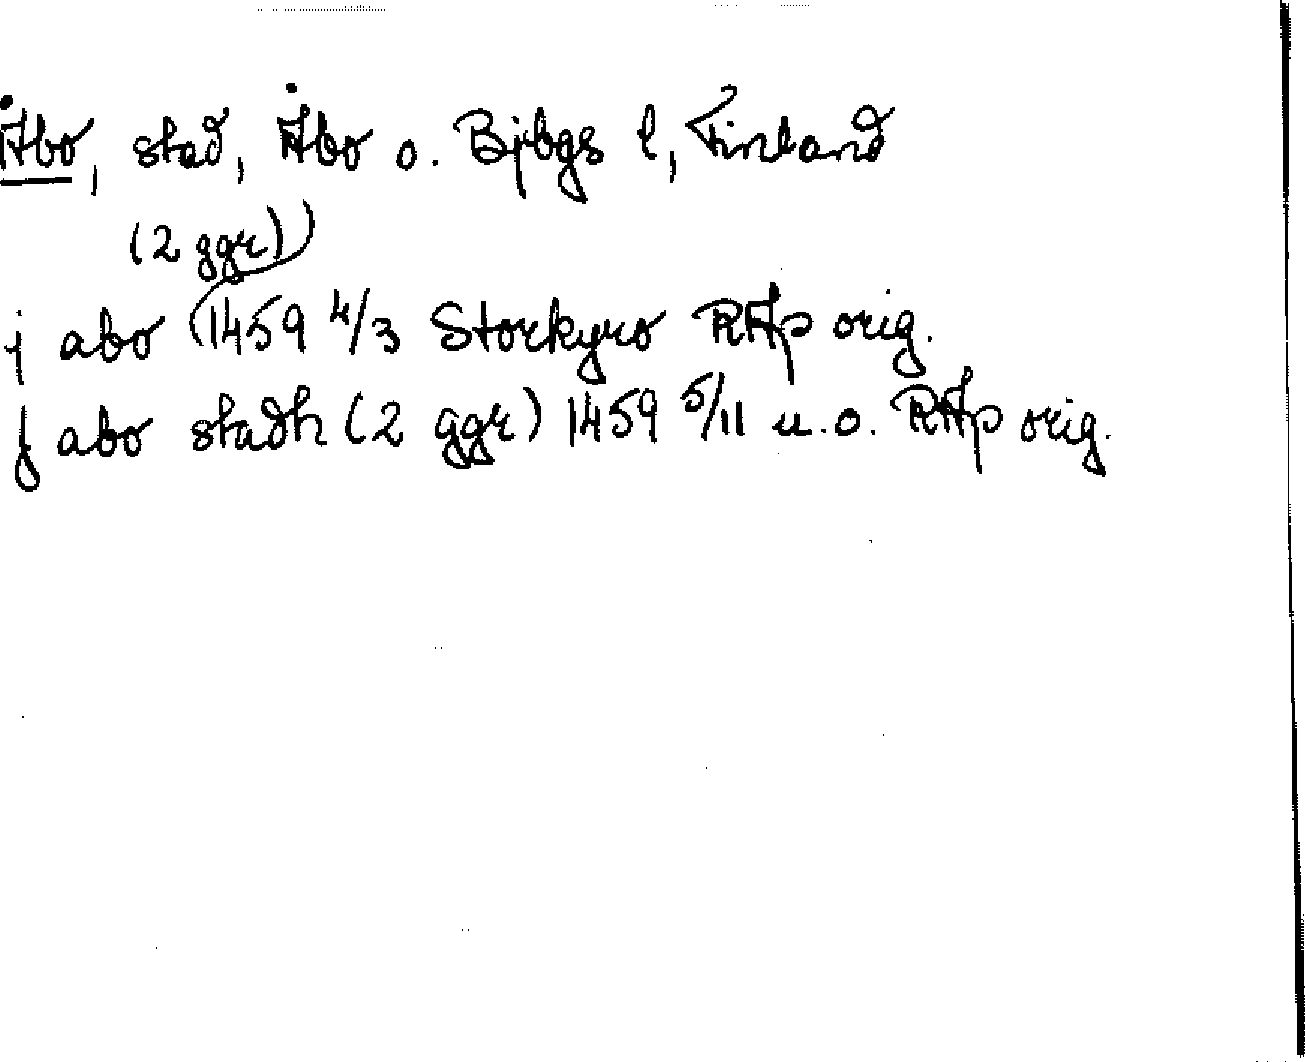 Åbo, stad, Åbo o. Bjbgs l, Finland
(2 ggr)
j abo 1459 4/3 Storkyro RAp orig.
j abo stadh (2 ggr) 1459 5/11 u.o. RAp orig.